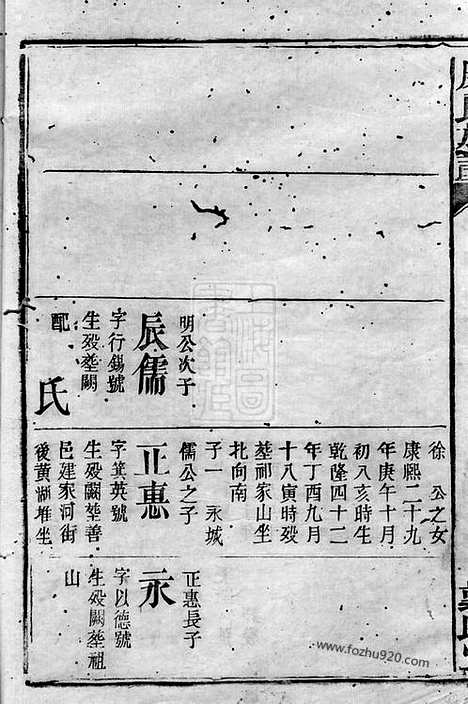 明公次子
辰儒
字行錫號
生殁塟闕
配 氏
徐 公之女
康熙二十九
年庚午十月
初八亥時生
乾隆四十二
年丁酉九月
十八寅時殁
墓祁家山坐
北向南
子一 永城
儒公之子
正惠
字箕英號
生殁闕塟善
邑建家河街
後黄湖堆坐
正惠長子
永
字以德號
生殁闕塟祖
山
www.fozhu920.com